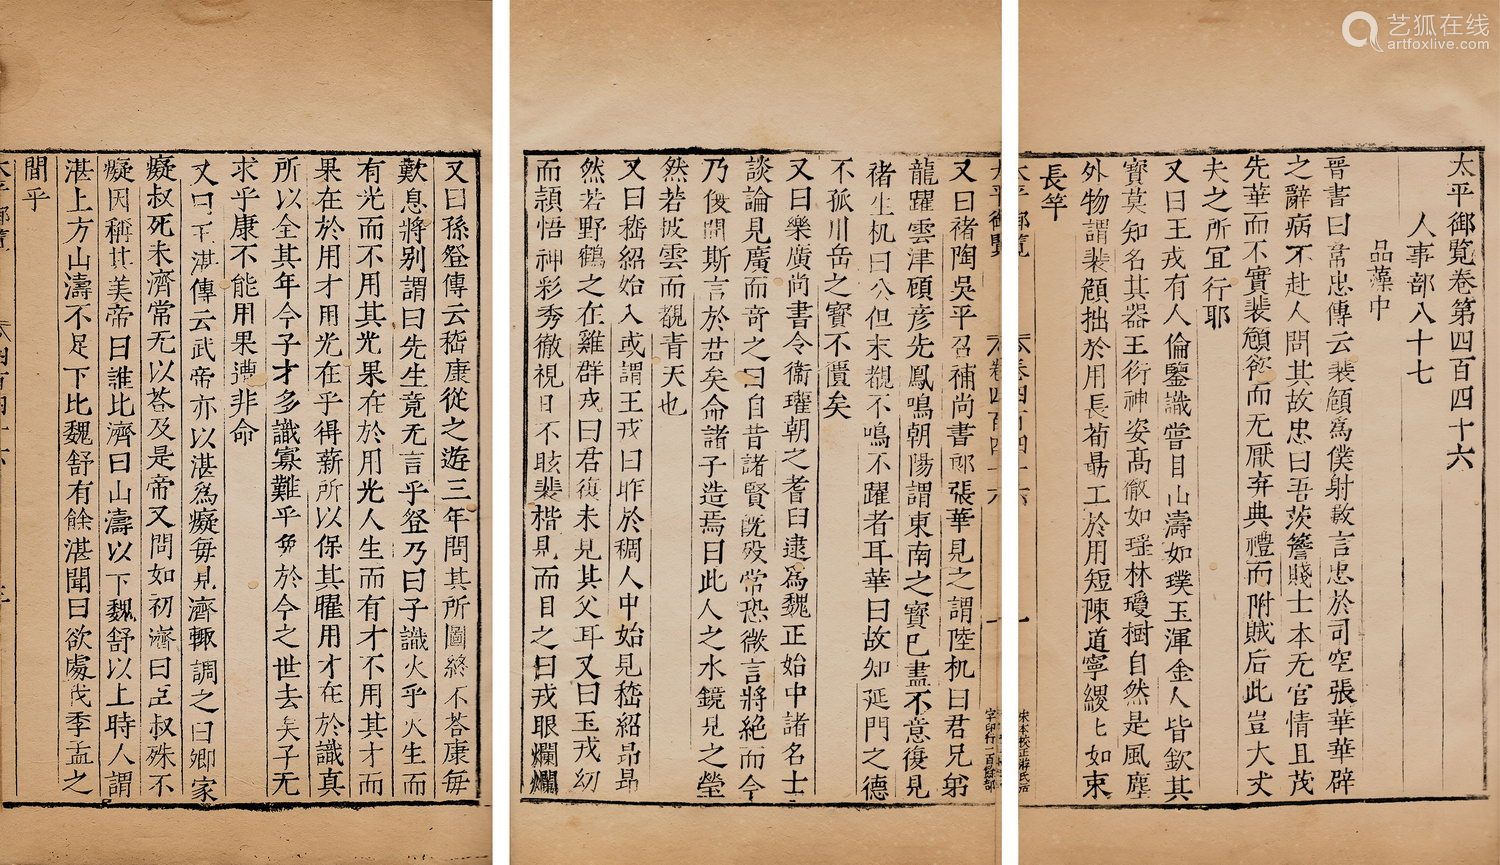 太平御覧卷第四百四十六
人事部八十七
品藻中
晋書曰常忠傳云裴頠爲僕射数言忠於司空張華華辟
之辭病不赴人問其故忠曰吾茨簷賤士本无官情且茂
先華而不實裴頠慾而无厭弃典禮而附賊后此豈大丈
夫之所宜行耶
又曰王戎有人倫鑒識嘗目山濤如璞玉渾金人皆欽其
寳莫知名其器王衍神姿髙徹如瑤林瓊樹自然是風塵
外物謂裴頠拙於用長荀勗工於用短陳道寧纓匕如束
長竿
太平御覧 卷四百四十六 一
宋本校正游氏活
字印行一百餘部
又曰禇陶吳平召補尚書郎張華見之謂陸机曰君兄弟
龍躍雲津碩彦先鳳鳴朝陽謂東南之寳已盡不意復見
禇生机曰公但末覩不鳴不躍者耳華曰故知延門之德
不孤川岳之寳不匱矣
又曰樂廣尚書令衞瓘朝之耆臼逮爲魏正始中諸名士
談論見廣而奇之曰自昔諸賢既殁常恐微言將絶而今
乃復聞斯言於君矣命諸子造焉曰此人之水鏡見之瑩
然若披雲而覩青天也
又曰嵇紹始入或謂王戎曰昨於稠人中始見嵇紹昻昻
然若野鶴之在雞群戎曰君復未見其父耳又曰王戎幼
而頴悟神彩秀徹視日不眩裴楷見而目之曰戎眼爛爛
又曰孫登傳云嵇康從之遊三年問其所圖終不荅康毎
歎息將别謂曰先生竟无言乎登乃曰子識火乎火生而
有光而不用其光果在於用光人生而有才不用其才而
果在於用才用光在乎得薪所以保其曜用才在於識真
所以全其年今子才多識寡難乎免於今之世去矣子无
求乎康不能用果遭非命
又曰王湛傳云武帝亦以湛爲癡毎見濟輙調之曰卿家
癡叔死未濟常无以荅及是帝又問如初濟曰臣叔殊不
癡因稱其美帝曰誰比濟曰山濤以下魏舒以上時人謂
湛上方山濤不足下比魏舒有餘湛聞曰欲處我季孟之
間乎
太平御覧 卷四百四十六
艺狐在线
artfoxlive.com